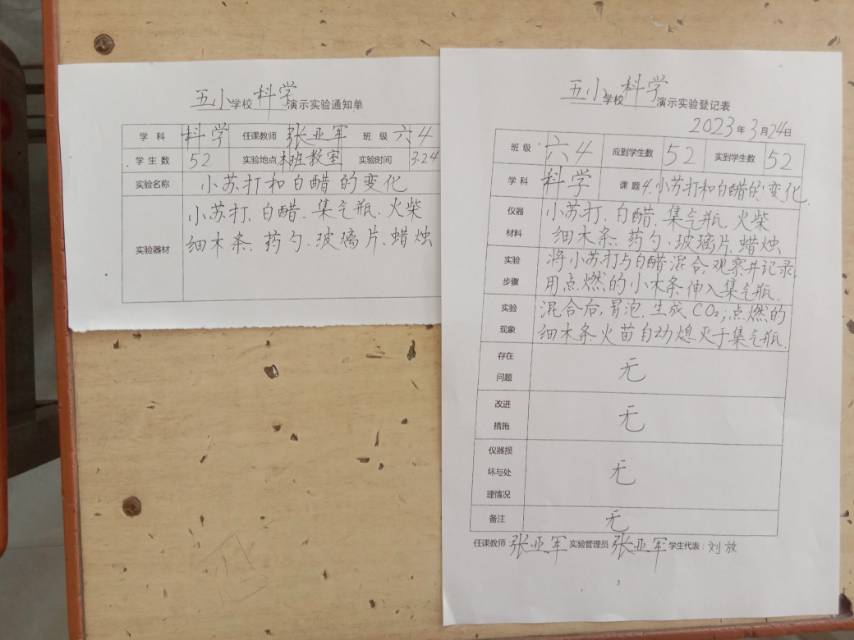 五小学校科学演示实验通知单
学 科 科学 任课教师 张亚军 班 级 六4
学 生 数 52 实验地点 本班教室 实验时间 3.24
实验名称 小苏打和白醋的变化
实验器材 小苏打、白醋、集气瓶、火柴
细木条、药勺、玻璃片、蜡烛
五小学校科学演示实验登记表
2023年3月24日
班 级 六4 应到学生数 52 实到学生数 52
学 科 科学 课 题 4.小苏打和白醋的变化
仪器材料 小苏打、白醋、集气瓶、火柴
细木条、药勺、玻璃片、蜡烛
实验步骤 将小苏打与白醋混合,观察并记录,
用点燃的小木条伸入集气瓶.
实验现象 混合后,冒泡,生成CO₂;点燃的
细木条火苗自动熄灭于集气瓶.
存在问题 无
改进措施 无
仪器损坏与处理情况 无
备注 无
任课教师 张亚军 实验管理员 张亚军 学生代表:刘放